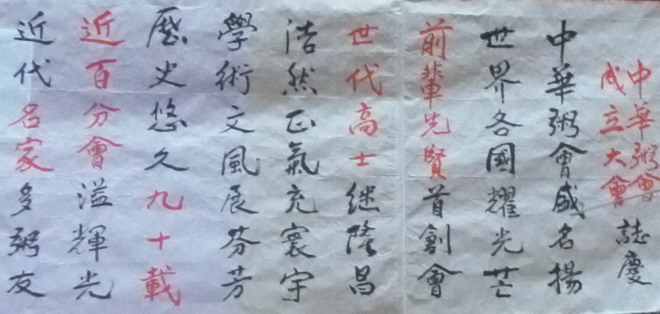 中華粥會
成立大會 誌慶
中華粥會威名揚
世界各國耀光芒
前輩先賢首創會
世代高士継隆昌
浩然正氣充寰宇
學術文風展芬芳
歷史悠久九十載
近百分會溢輝光
近代名家多粥友